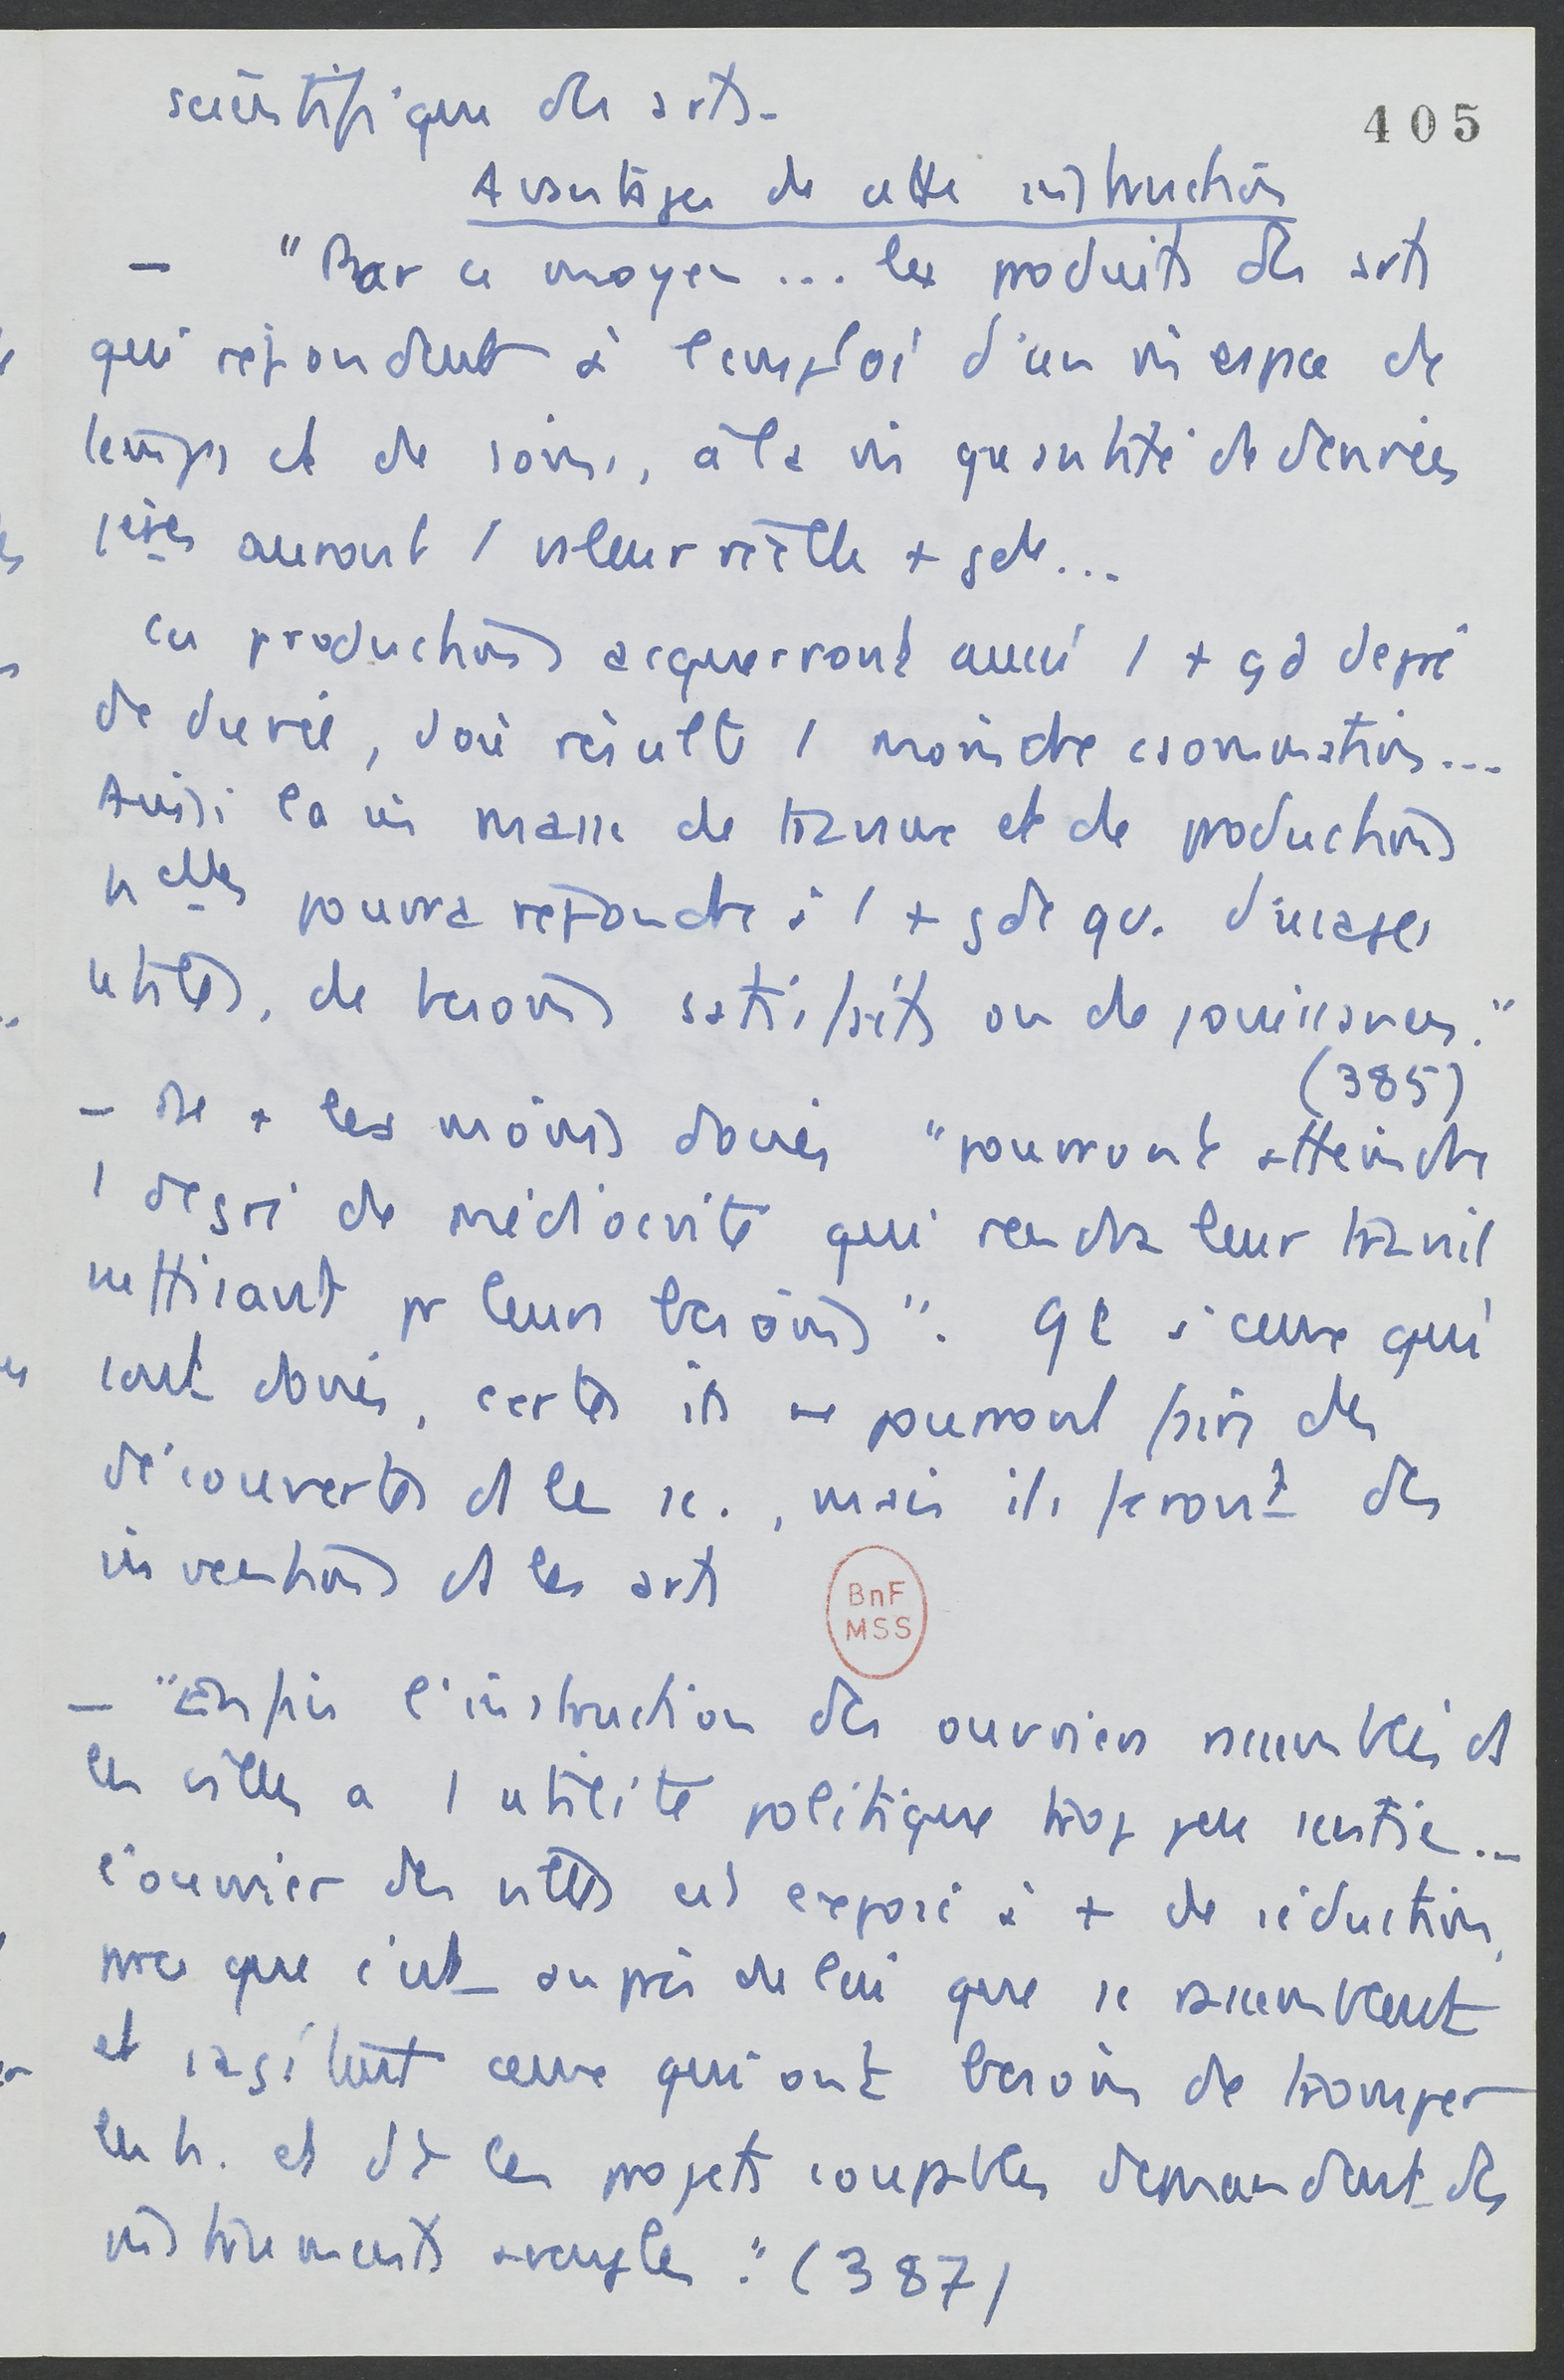 scientifique des arts-
405
Avantages de cette instruction
- "Par ce moyen... les produits des arts
qui répondent à l'emploi d'un m̂ espace de
temps et de soins, à la m̂ quantité de denrées
1ères auront 1 valeur réelle + gde...
ces productions acquerront aussi 1 + gd degré
de durée, d'où résulte 1 moindre consommation...
Ainsi la m̂ masse de travaux et de productions
nelles pourra répondre à 1 + gde qu. d'usages
utiles, de besoins satisfaits ou de jouissances."
(385)
- De + les moins doués "pourront atteindre
1 degré de médiocrité qui rendra leur travail
suffisant pr leurs besoins". Qt à ceux qui
sont doués, certes ils ne pourront faire des
découvertes ds les sc., mais ils feront des
inventions ds les arts
BnF
MSS
- "Enfin l'instruction des ouvriers rassemblés ds
les villes a 1 utilité politique trop peu sentie...
l'ouvrier des villes est exposé à + de séduction,
parce que c'est auprès de lui que se rassemblent
et s'agitent ceux qui ont besoin de tromper
les h. et dt les projets coupables demandent des
instruments aveugles." (387)